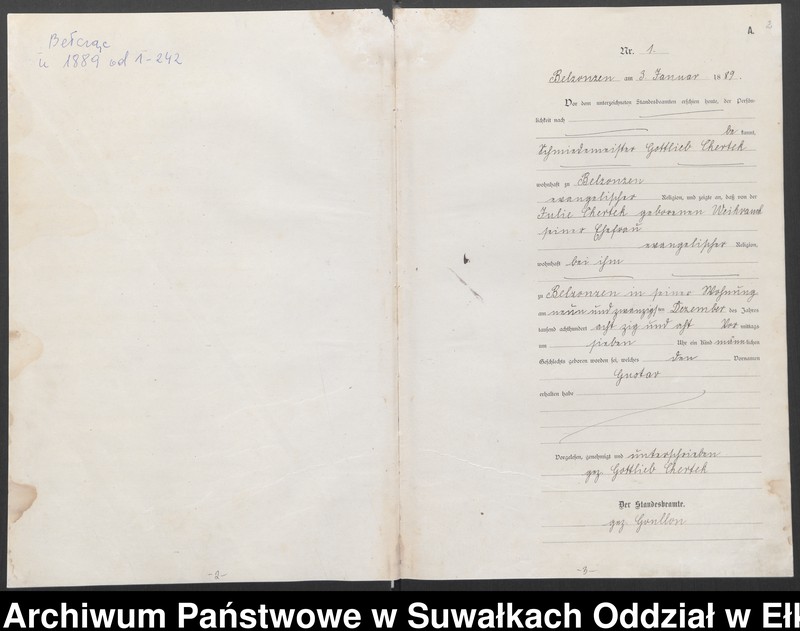 Bełcząc
u 1889 od 1-242
A.
2
Nr. 1.
Belzonzen am 3. Januar 1889.
Vor dem unterzeichneten Standesbeamten erschien heute, der Persön-
lichkeit nach
be kannt,
Schmiedemeister Gottlieb Chertek
wohnhaft zu Belzonzen
evangelischer Religion, und zeigte an, daß von der
Julie Chertek geborenen Weikrandt
seiner Ehefrau
evangelischer Religion,
wohnhaft bei ihm
zu Belzonzen in seiner Wohnung
am neun und zwanzigsten Dezember des Jahres
tausend achthundert acht zig und acht Vor mittags
um sieben Uhr ein Kind männ lichen
Geschlechts geboren worden sei, welches den Vornamen
Gustav
erhalten habe
Vorgelesen, genehmigt und unterschrieben
gez. Gottlieb Chertek
Der Standesbeamte.
gez. Goullon
-2-
-3-
Archiwum Państwowe w Suwałkach Oddział w Ełk